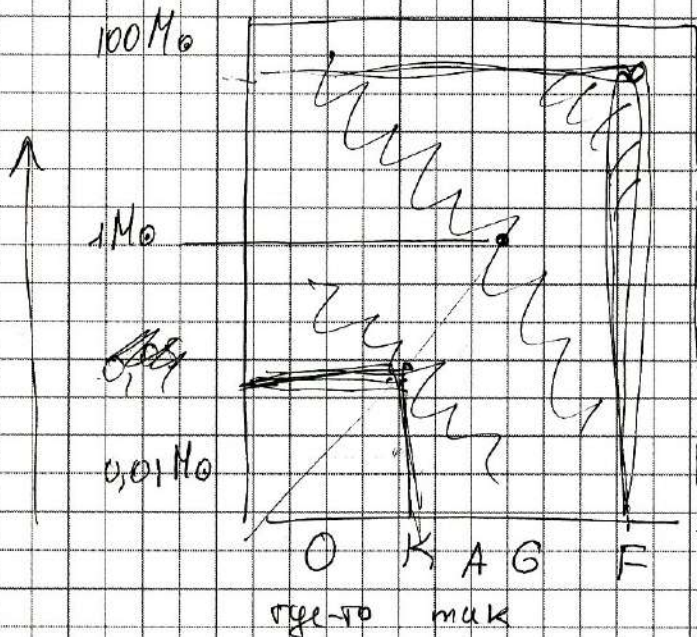 100 M⊙
1 M⊙
0,01 M⊙
O K A G F
где-то так